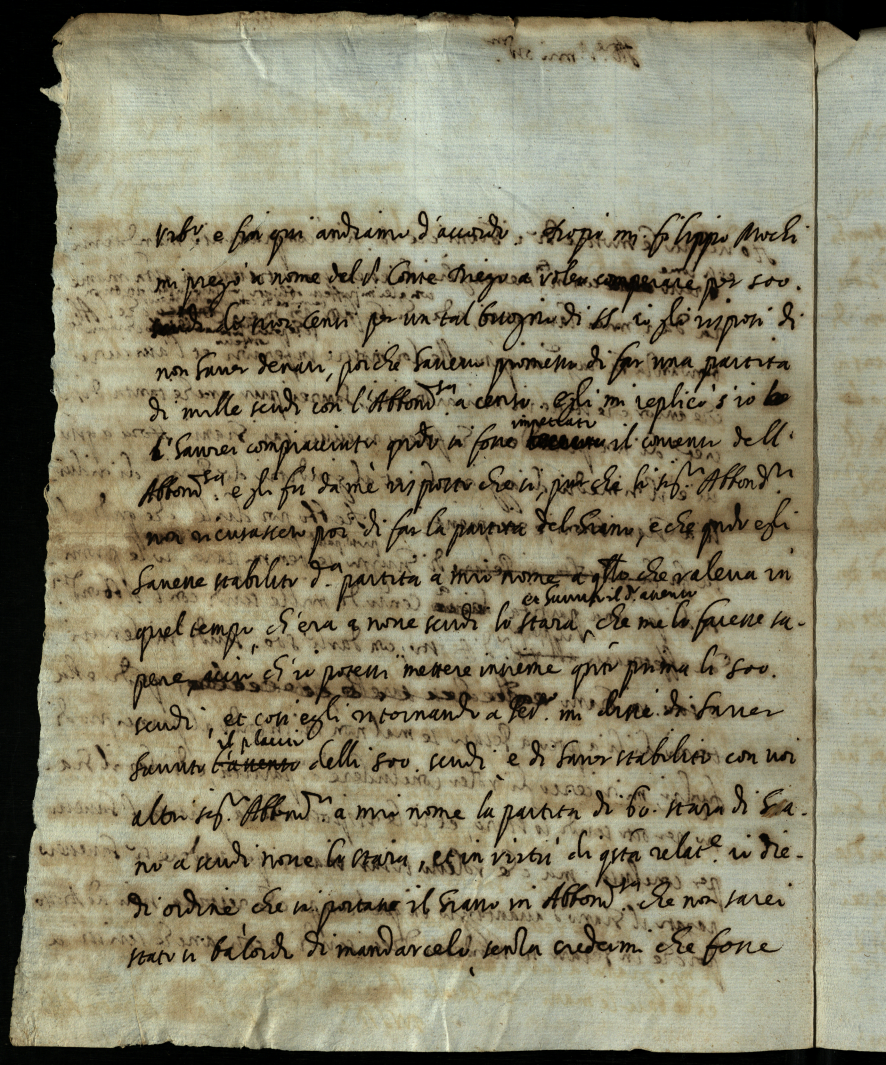 e fin qui andiamo d'accordo. Dopo mi Filippo Mochi
mi pregò a nome del S. Conte Diego a voler comperare per 500.
scudi censi per un tal bisogno di SS. io gli risposi di
non haver denari, poiche havevo promesso di far una partita
di mille scudi con l'Abbond.za a censo. egli mi replicò s'io
l'haurei compiaciuto qñdo si fosse impetrato il consenso dell'
Abbond.za e gli fù da mè risposto che si, pur che li sig.ri Abbond.ri
non ricusassero poi di far la partita del Grano, e che qñdo egli
havesse stabilito d.a partita à mio nome a qllo che valeva in
et havuto il d.o assenso
quel tempo, ch'era a nove scudi lo staro, che me lo facesse sa-
pere, ch'io potessi mettere insieme qñto prima li 500.
scudi, et cosi egli ritornando a mi disse di haver
il placito
havuto l'assenso delli 500. scudi e di haver stabilito con voi
altri sig.ri Abbond.ri à mio nome la partita di 60. stara di Gra-
no à scudi nove lo staro, et in virtù di qsta relat.e io die-
di ordine che si portasse il Grano in Abbond.za che non sarei
stato si balordo di mandarcelo, senza credermi che fosse